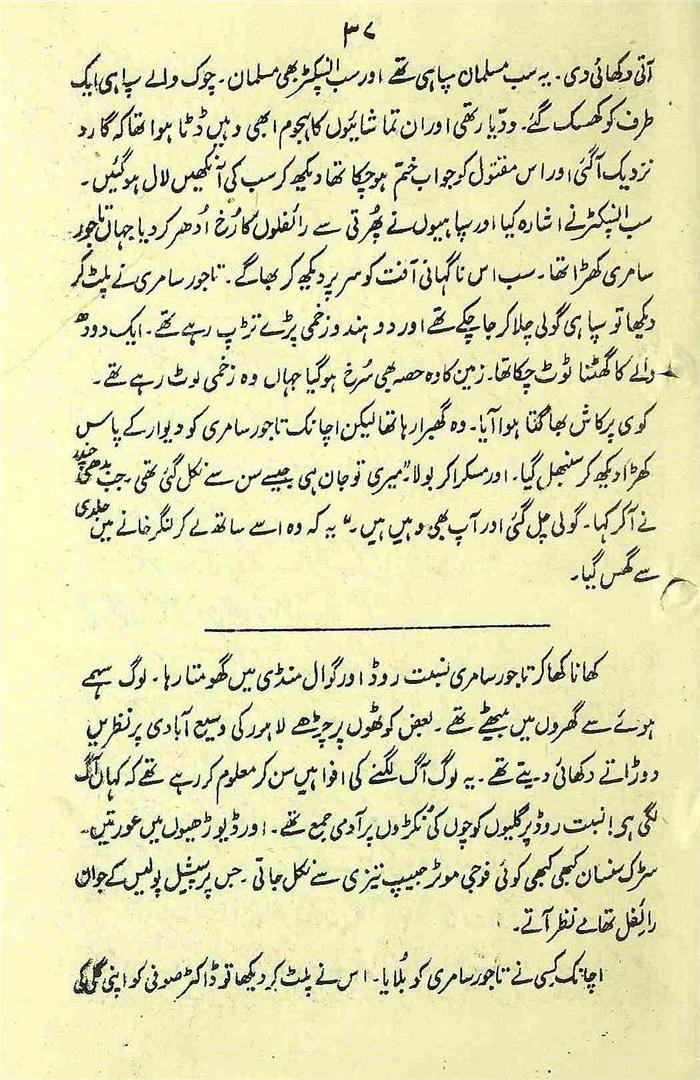 ۳۷
آتی دکھائی دی۔ یہ سب مسلمان سپاہی تھے اور سب انسپکٹر بھی مسلمان۔ چوک والے سپاہی ایک
طرف کو کھسک گئے۔ ودّیارتھی اور ان تماشائیوں کا ہجوم ابھی وہیں ڈٹا ہوا تھا کہ گارد
نزدیک آگئی اور اس مقتول کو جو اب ختم ہوچکا تھا دیکھ کر سب کی آنکھیں لال ہوگئیں۔
سب انسپکٹر نے اشارہ کیا اور سپاہیوں نے پُھرتی سے رائفلوں کا رُخ اُدھر کردیا جہاں تاجور
سامری کھڑا تھا۔ سب اس ناگہانی آفت کو سر پر دیکھ کر بھاگے۔ تاجور سامری نے پلٹ کر
دیکھا تو سپاہی گولی چلا کر جاچکے تھے اور دو ہندو زخمی پڑے تڑپ رہے تھے۔ ایک دودھ
والے کا گھٹنا ٹوٹ چکا تھا۔ زمین کا وہ حصہ بھی سُرخ ہوگیا جہاں وہ زخمی لوٹ رہے تھے۔
کوی پرکاش بھاگتا ہوا آیا۔ وہ گھبرا رہا تھا لیکن اچانک تاجور سامری کو دیوار کے پاس
کھڑا دیکھ کر سنبھل گیا۔ اور مسکرا کر بولا۔ "میری تو جان ہی جیسے سن سے نکل گئی تھی۔ جب بدھی چندر
نے آکر کہا۔ گولی چل گئی اور آپ بھی وہیں ہیں۔" یہ کہہ وہ اسے ساتھ لے کر لنگر خانے میں جلدی
سے گھس گیا۔
کھانا کھا کر تاجور سامری نسبت روڈ اور گوال منڈی میں گھومتا رہا۔ لوگ سہمے
ہوئے سے گھروں میں بیٹھے تھے۔ بعض کوٹھوں پر چڑھے لاہور کی وسیع آبادی پر نظریں
دوڑاتے دکھائی دیتے تھے۔ یہ لوگ آگ لگنے کی افواہیں سن کر معلوم کررہے تھے کہ کہاں آگ
لگی ہے! نسبت روڈ پر گلیوں کوچوں کی نُکڑوں پر آدمی جمع تھے۔ اور ڈیوڑھیوں میں عورتیں۔
سڑک سنسان کبھی کبھی کوئی فوجی موٹر جیپ تیزی سے نکل جاتی۔ جس پر سپیشل پولیس کے جوان
رائفل تھامے نظر آتے۔
اچانک کسی نے تاجور سامری کو بُلایا۔ اس نے پلٹ کر دیکھا تو ڈاکٹر صوفی کو اپنی گلی کی